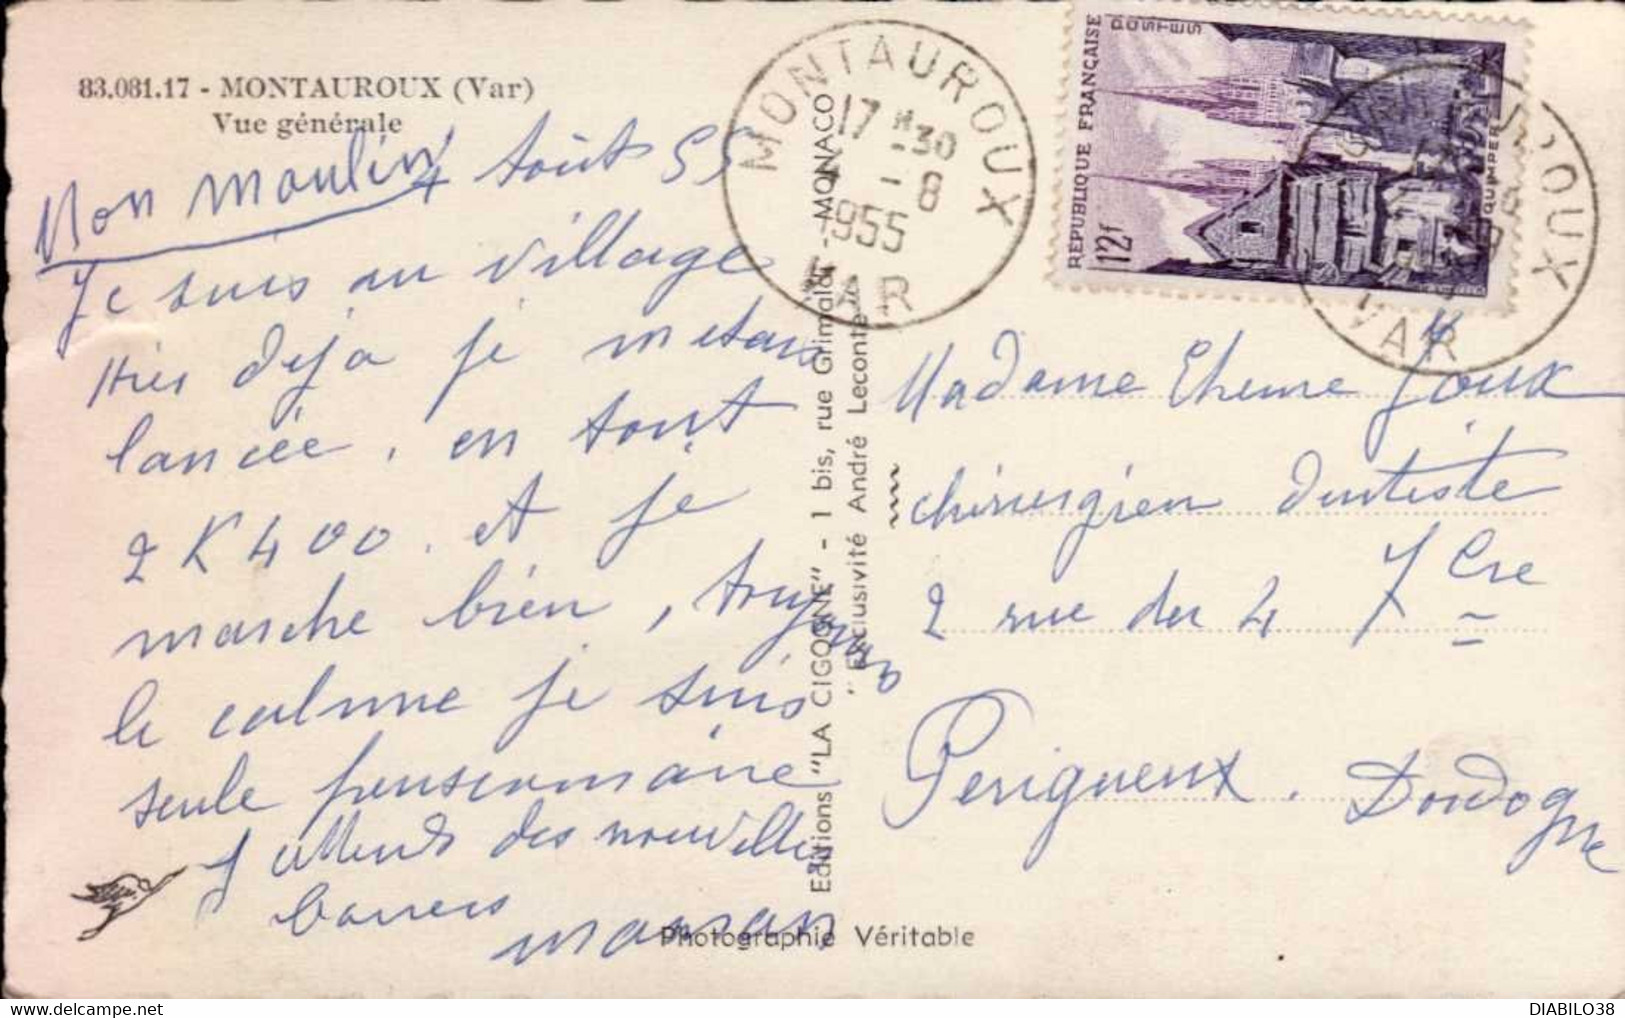 83.081.17 - MONTAUROUX (Var)
Vue générale
Mon moulin 4 août 55
Je suis au village
hier déjà je m'etais
lancée. en tout
2 K 400. et je
marche bien, toujours
le calme je suis
seule pensionnaire
J'attends des nouvelles
baisers
maman
Editions "LA CIGOGNE" - 1 bis, rue Grimaldi - MONACO
"Exclusivité André Leconte"
Photographie Véritable
MONTAUROUX
17 H 30
4 - 8
1955
VAR
RÉPUBLIQUE FRANÇAISE
POSTES
12f
QUIMPER
VAR
Madame Etienne Joux
chirurgien dentiste
2 rue du 4 7bre
Perigueux. Dordogne
DIABILO38